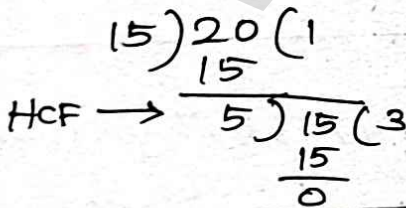 15)20(1
15
HCF → 5)15(3
15
0